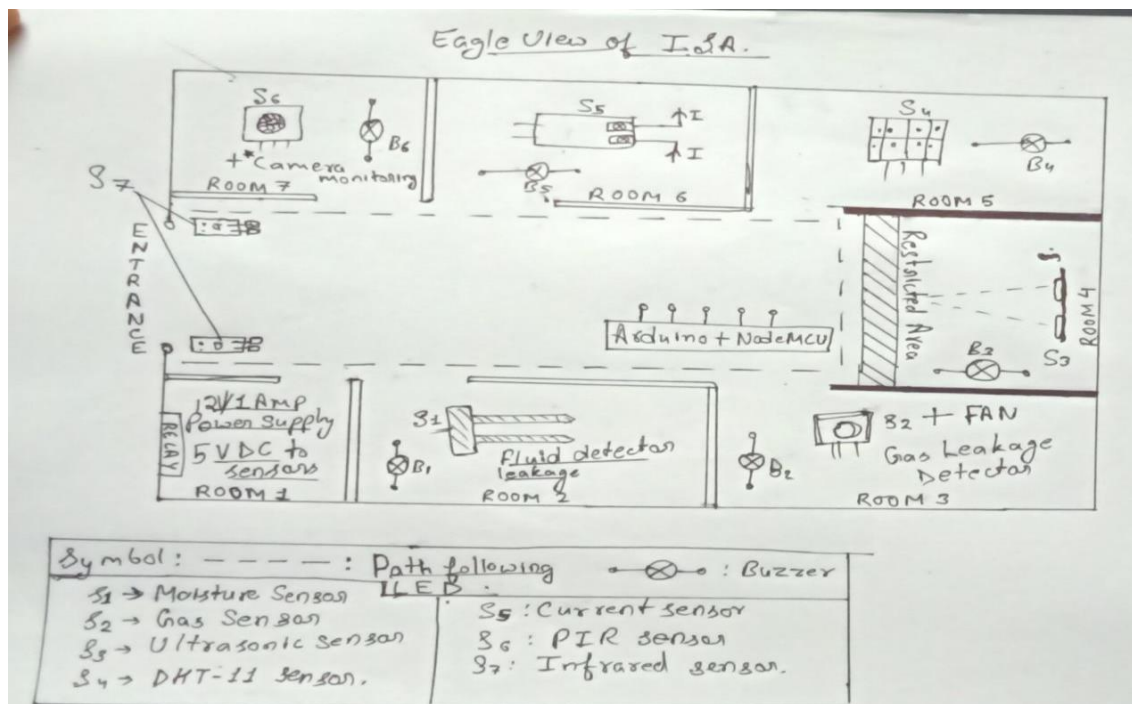 Eagle View of I.S.A.
S6
B6
+*Camera
monitoring
ROOM 7
S5
I
I
B5
ROOM 6
S4
B4
ROOM 5
S7
ENTRANCE
Arduino + NodeMCU
Restricted Area
B3
S3
ROOM 4
12V/1 AMP
Power Supply
5 VDC to
sensors
RELAY
ROOM 1
B1
S1
fluid detector
leakage
ROOM 2
B2
S2 + FAN
Gas Leakage
Detector
ROOM 3
Symbol: - - - - - : Path following
LED.
: Buzzer
S1 → Moisture Sensor
S2 → Gas Sensor
S3 → Ultrasonic Sensor
S4 → DHT-11 sensor.
S5 : Current sensor
S6 : PIR sensor
S7 : Infrared sensor.